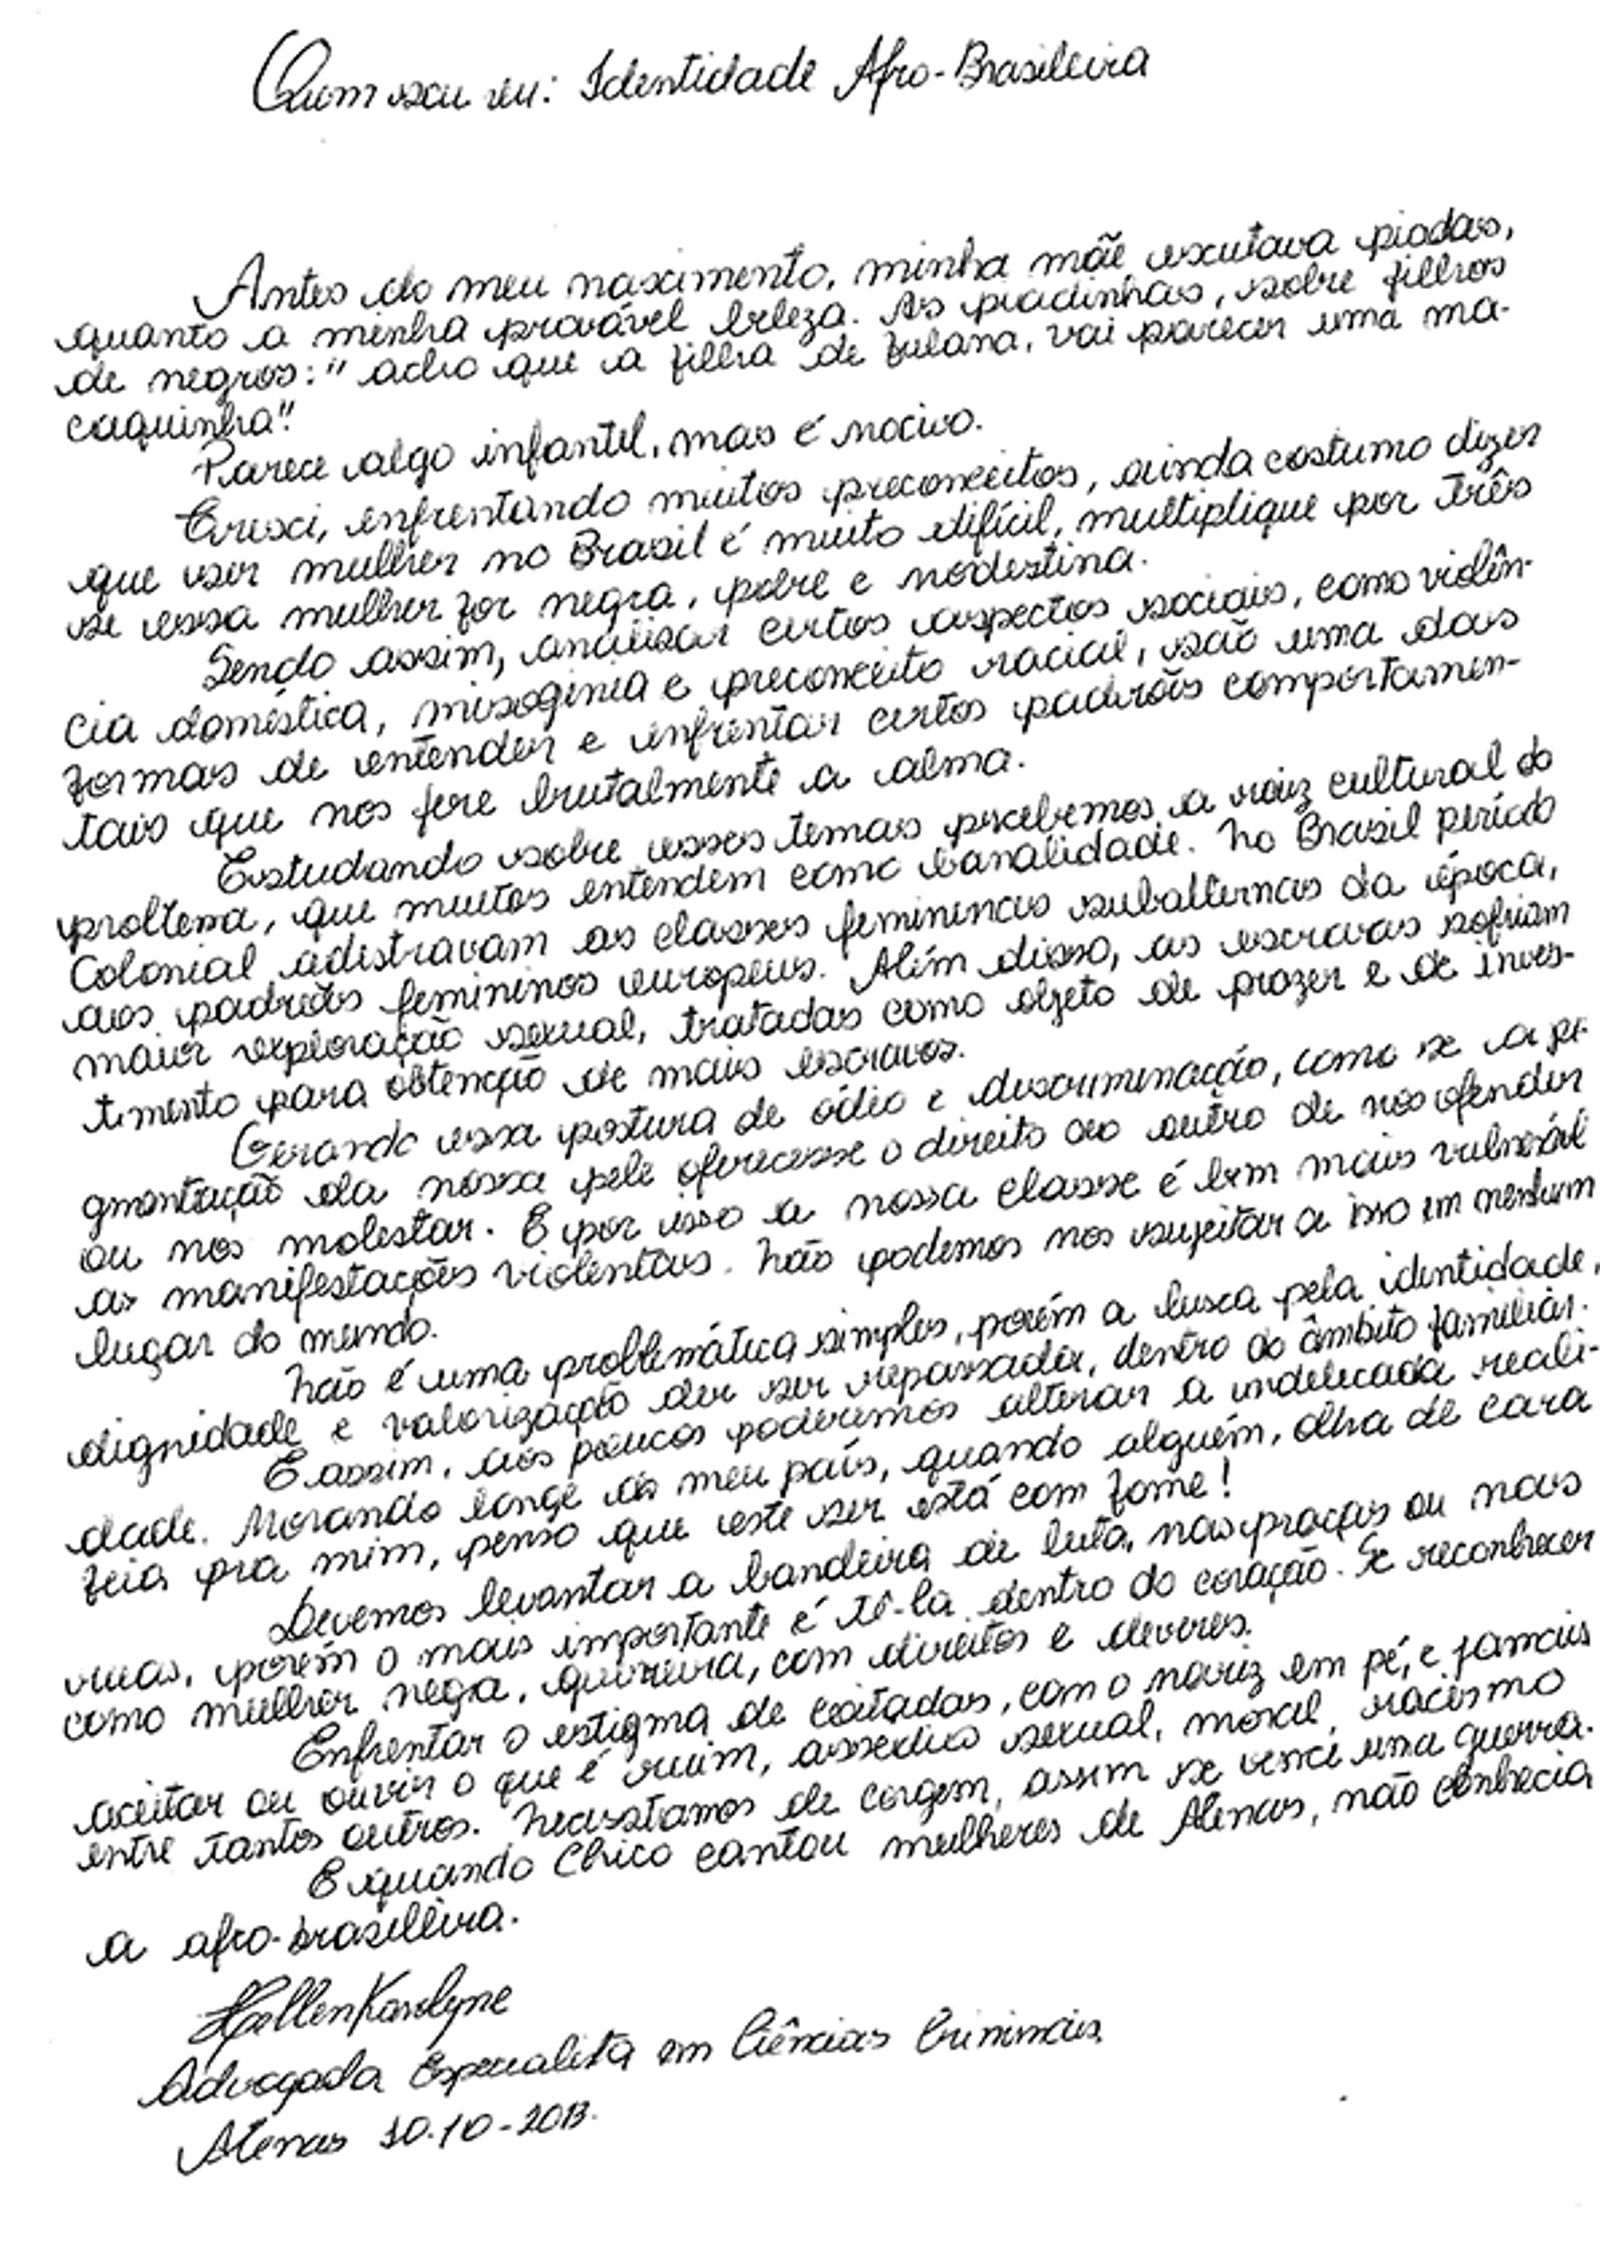 Quem sou eu: Identidade Afro-Brasileira
Antes do meu nascimento, minha mãe escutava piadas,
quanto a minha provável beleza. As piadinhas, sobre filhos
de negros: "acho que a filha de fulana, vai parecer uma ma-
caquinha".
Parece algo infantil, mas é nocivo.
Cresci, enfrentando muitos preconceitos, ainda costumo dizer
que ser mulher no Brasil é muito difícil, multiplique por três
se essa mulher for negra, pobre e nordestina.
Sendo assim, analisar certos aspectos sociais, como violên-
cia doméstica, misoginia e preconceito racial, são uma das
formas de entender e enfrentar certos padrões comportamen-
tais que nos fere brutalmente a alma.
Estudando sobre esses temas percebemos a raiz cultural do
problema, que muitos entendem como banalidade. No Brasil período
Colonial adestravam as classes femininas subalternas da época,
aos padrões femininos europeus. Além disso, as escravas sofriam
maior exploração sexual, tratadas como objeto de prazer e de inves-
timento para obtenção de mais escravos.
Gerando essa postura de ódio e discriminação, como se a pi-
gmentação da nossa pele oferecesse o direito ao outro de nos ofender
ou nos molestar. E por isso a nossa classe é bem mais vulnerável
as manifestações violentas. Não podemos nos sujeitar a isso em nenhum
lugar do mundo.
Não é uma problemática simples, porém a busca pela identidade,
dignidade e valorização der ser repassada, dentro do âmbito familiar.
E assim, aos poucos poderemos alterar a indelicada reali-
dade. Morando longe do meu país, quando alguém, olha de cara
feia pra mim, penso que este ser está com fome!
Devemos levantar a bandeira de luta, nas praças ou nas
ruas, porém o mais importante é tê-la dentro do coração. Se reconhecer
como mulher nega, guerreira, com direitos e deveres.
Enfrentar o estigma de coitadas, com o nariz em pé, e jamais
aceitar ou ouvir o que é ruim, assédio sexual, moral, racismo
entre tantos outros. Necessitamos de corgem, assim se vence uma guerra.
E quando Chico cantou mulheres de Atenas, não conhecia
a afro-brasileira.
Hellen Karolyne
Advogada Especialista em Ciências Criminais
Atenas 10.10-2013.